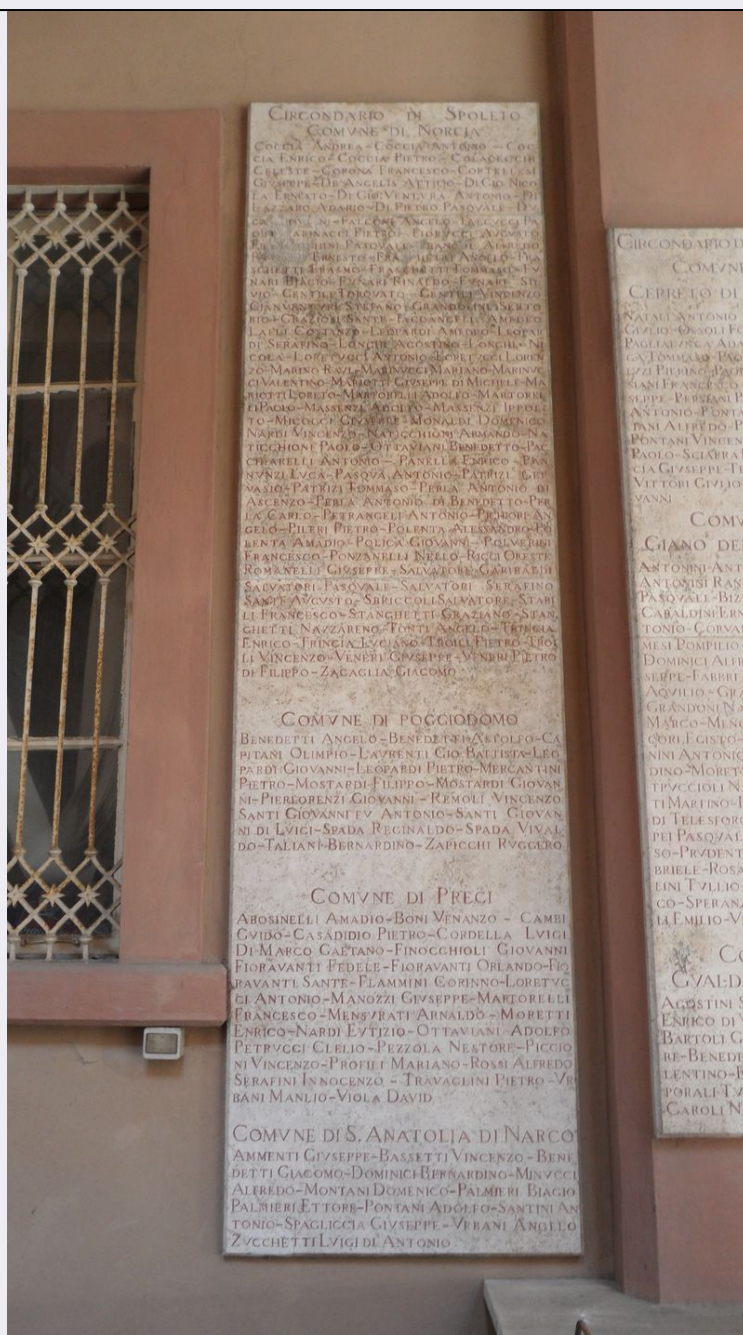 CIRCONDARIO DI SPOLETO
COMVNE DI NORCIA
COCCIA ANDREA-COCCIA ANTONIO-COC
CIA ENRICO-COCCIA PIETRO-COLADECCHI
CELESTE-CORONA FRANCESCO-CORTELLESI
GIVSEPPE-DE ANGELIS ATTILIO-DI GIO NICO
LA ERNESTO-DI GIO VENTVRA ANTONIO-
LAZZARO ADARIO-DI PIETRO PASQVALE-
FALCONE ANGELO-
PIETRO-FIORVCCI AVGVSTO
PASQVALE-
ERNESTO-ANGELO-FRA
SCHETTI ERASMO-FRASCHETTI TOMMASO-FV
NARI BIAGIO-FVNARI RINALDO-FVNARI SIL
VIO-GENTILI TORQVATO-GENTILI VINCENZO
STEFANO-
RIO-GRAZIOSI SANTE-AMEDEO
LALLI COSTANZO-LEOPARDI AMEDEO-LEOPAR
DI SERAFINO-LONGHI AGOSTINO-LONGHI-NI
COLA-LORETVCCI ANTONIO-LORETVCCI LOREN
ZO-MARINO RAVL-MARINVCCI MARIANO-MARINVC
CI VALENTINO-MARIOTTI GIVSEPPE DI MICHELE-MA
RIOTTI LORETO-MARTORELLI ADOLFO-MARTOREL
LI PAOLO-MASSENZI ADOLFO-MASSENZI IPPOLI
TO-MICOCCI GIVSEPPE-MONALDI DOMENICO
NARDI VINCENZO-NATICCHIONI ARMANDO-NA
TICCHIONE PAOLO-OTTAVIANI BENEDETTO-PAC
CHIARELLI ANTONIO-PANELLA ENRICO-PAN
NVNZI LVCA-PASQVA ANTONIO-PATRIZI GER
VASIO-PATRIZI TOMMASO-PERLA ANTONIO DI
ASCENZO-PERLA ANTONIO DI BENEDETTO-PER
LA CARLO-PETRANGELI ANTONIO-AN
GELO-PILERI PIETRO-POLENTA ALESSANDRO-PO
LENTA AMADIO-POLICA GIOVANNI-POLVERINI
FRANCESCO-PONZANELLI NELLO-RICCI ORESTE
ROMANELLI GIVSEPPE-SALVATORI GARIBALDI
SALVATORI PASQVALE-SALVATORI SERAFINO
SANTE AVGVSTO-SBRICCOLI SALVATORE-STABI
LI FRANCESCO-STANGHETTI GRAZIANO-STAN
GHETTI NAZZARENO-TONTI ANGELO-TRINCIA
ENRICO-TRINCIA LVCIANO-TROILI PIETRO-TROI
LI VINCENZO-VENERI GIVSEPPE-VENERI PIETRO
DI FILIPPO-ZAGAGLIA GIACOMO
COMVNE DI POGGIODOMO
BENEDETTI ANGELO-BENEDETTI ASTOLFO-CA
PITANI OLIMPIO-LAVRENTI GIO BATTISTA-LEO
PARDI GIOVANNI-LEOPARDI PIETRO-MERCANTINI
PIETRO-MOSTARDI FILIPPO-MOSTARDI GIOVAN
NI-PIERLORENZI GIOVANNI-REMOLI VINCENZO
SANTI GIOVANNI FV ANTONIO-SANTI GIOVAN
NI DI LVIGI-SPADA REGINALDO-SPADA VIVAL
DO-TALIANI BERNARDINO-ZAPICCHI RVGGERO
COMVNE DI PRECI
ABOSINELLI AMADIO-BONI VENANZO-CAMBI
GVIDO-CASADIDIO PIETRO-CORDELLA LVIGI
DI MARCO GAETANO-FINOCCHIOLI GIOVANNI
FIORAVANTI FEDELE-FIORAVANTI ORLANDO-FIO
RAVANTI SANTE-FLAMMINI CORINNO-LORETVC
CI ANTONIO-MANOZZI GIVSEPPE-MARTORELLI
FRANCESCO-MENSVRATI ARNALDO-MORETTI
ENRICO-NARDI EVTIZIO-OTTAVIANI ADOLFO
PETRVCCI CLELIO-PEZZOLA NESTORE-PICCIO
NI VINCENZO-PROFILI MARIANO-ROSSI ALFREDO
SERAFINI INNOCENZO-TRAVAGLINI PIETRO-VR
BANI MANLIO-VIOLA DAVID
COMVNE DI S. ANATOLIA DI NARCO
AMMENTI GIVSEPPE-BASSETTI VINCENZO-BENE
DETTI GIACOMO-DOMINICI BERNARDINO-MINVCCI
ALFREDO-MONTANI DOMENICO-PALMIERI BIAGIO
PALMIERI ETTORE-PONTANI ADOLFO-SANTINI AN
TONIO-SPAGLICCIA GIVSEPPE-VRBANI ANGELO
ZVCCHETTI LVIGI DI ANTONIO
CIRCONDARIO D
COMVNE
CERRETO DI
NATALI ANTONIO
GIVLIO-OSSOLI FO
ADA
GA TOMMASO-PAO
PIERINO-PAOL
FRANCESCO
SEPPE-PERSIANI P
ANTONIO-PONTA
TANI ALFREDO-P
PONTANI VINCEN
PAOLO-SCIARRA
CIA GIVSEPPE-TI
VITTORI GIVLIO
VANNI
COMV
GIANO DEL
ANTONINI ANT
ANTONINI RAN
PASQVALE-BIZ
CABALDINI ERN
TONIO-CORVA
MESI POMPILIO
DOMINICI ALFR
SEPPE-FABBRI
AQVILIO-GRA
GRANDONI NA
MARCO-MENG
CORI EGISTO-
NINI ANTONIO
DINO-MORET
TPVCCIOLI N
TI MARTINO-
DI TELESFOR
PEI PASQVAL
SO-PRVDENT
BRIELE-ROSA
LINI TVLLIO
CO-SPERAN
LI EMILIO-V
CO
GVALD
AGOSTINI S
ENRICO DI
BARTOLI G
RE-BENEDE
LENTINO-
PORALI-TV
CAROLI N